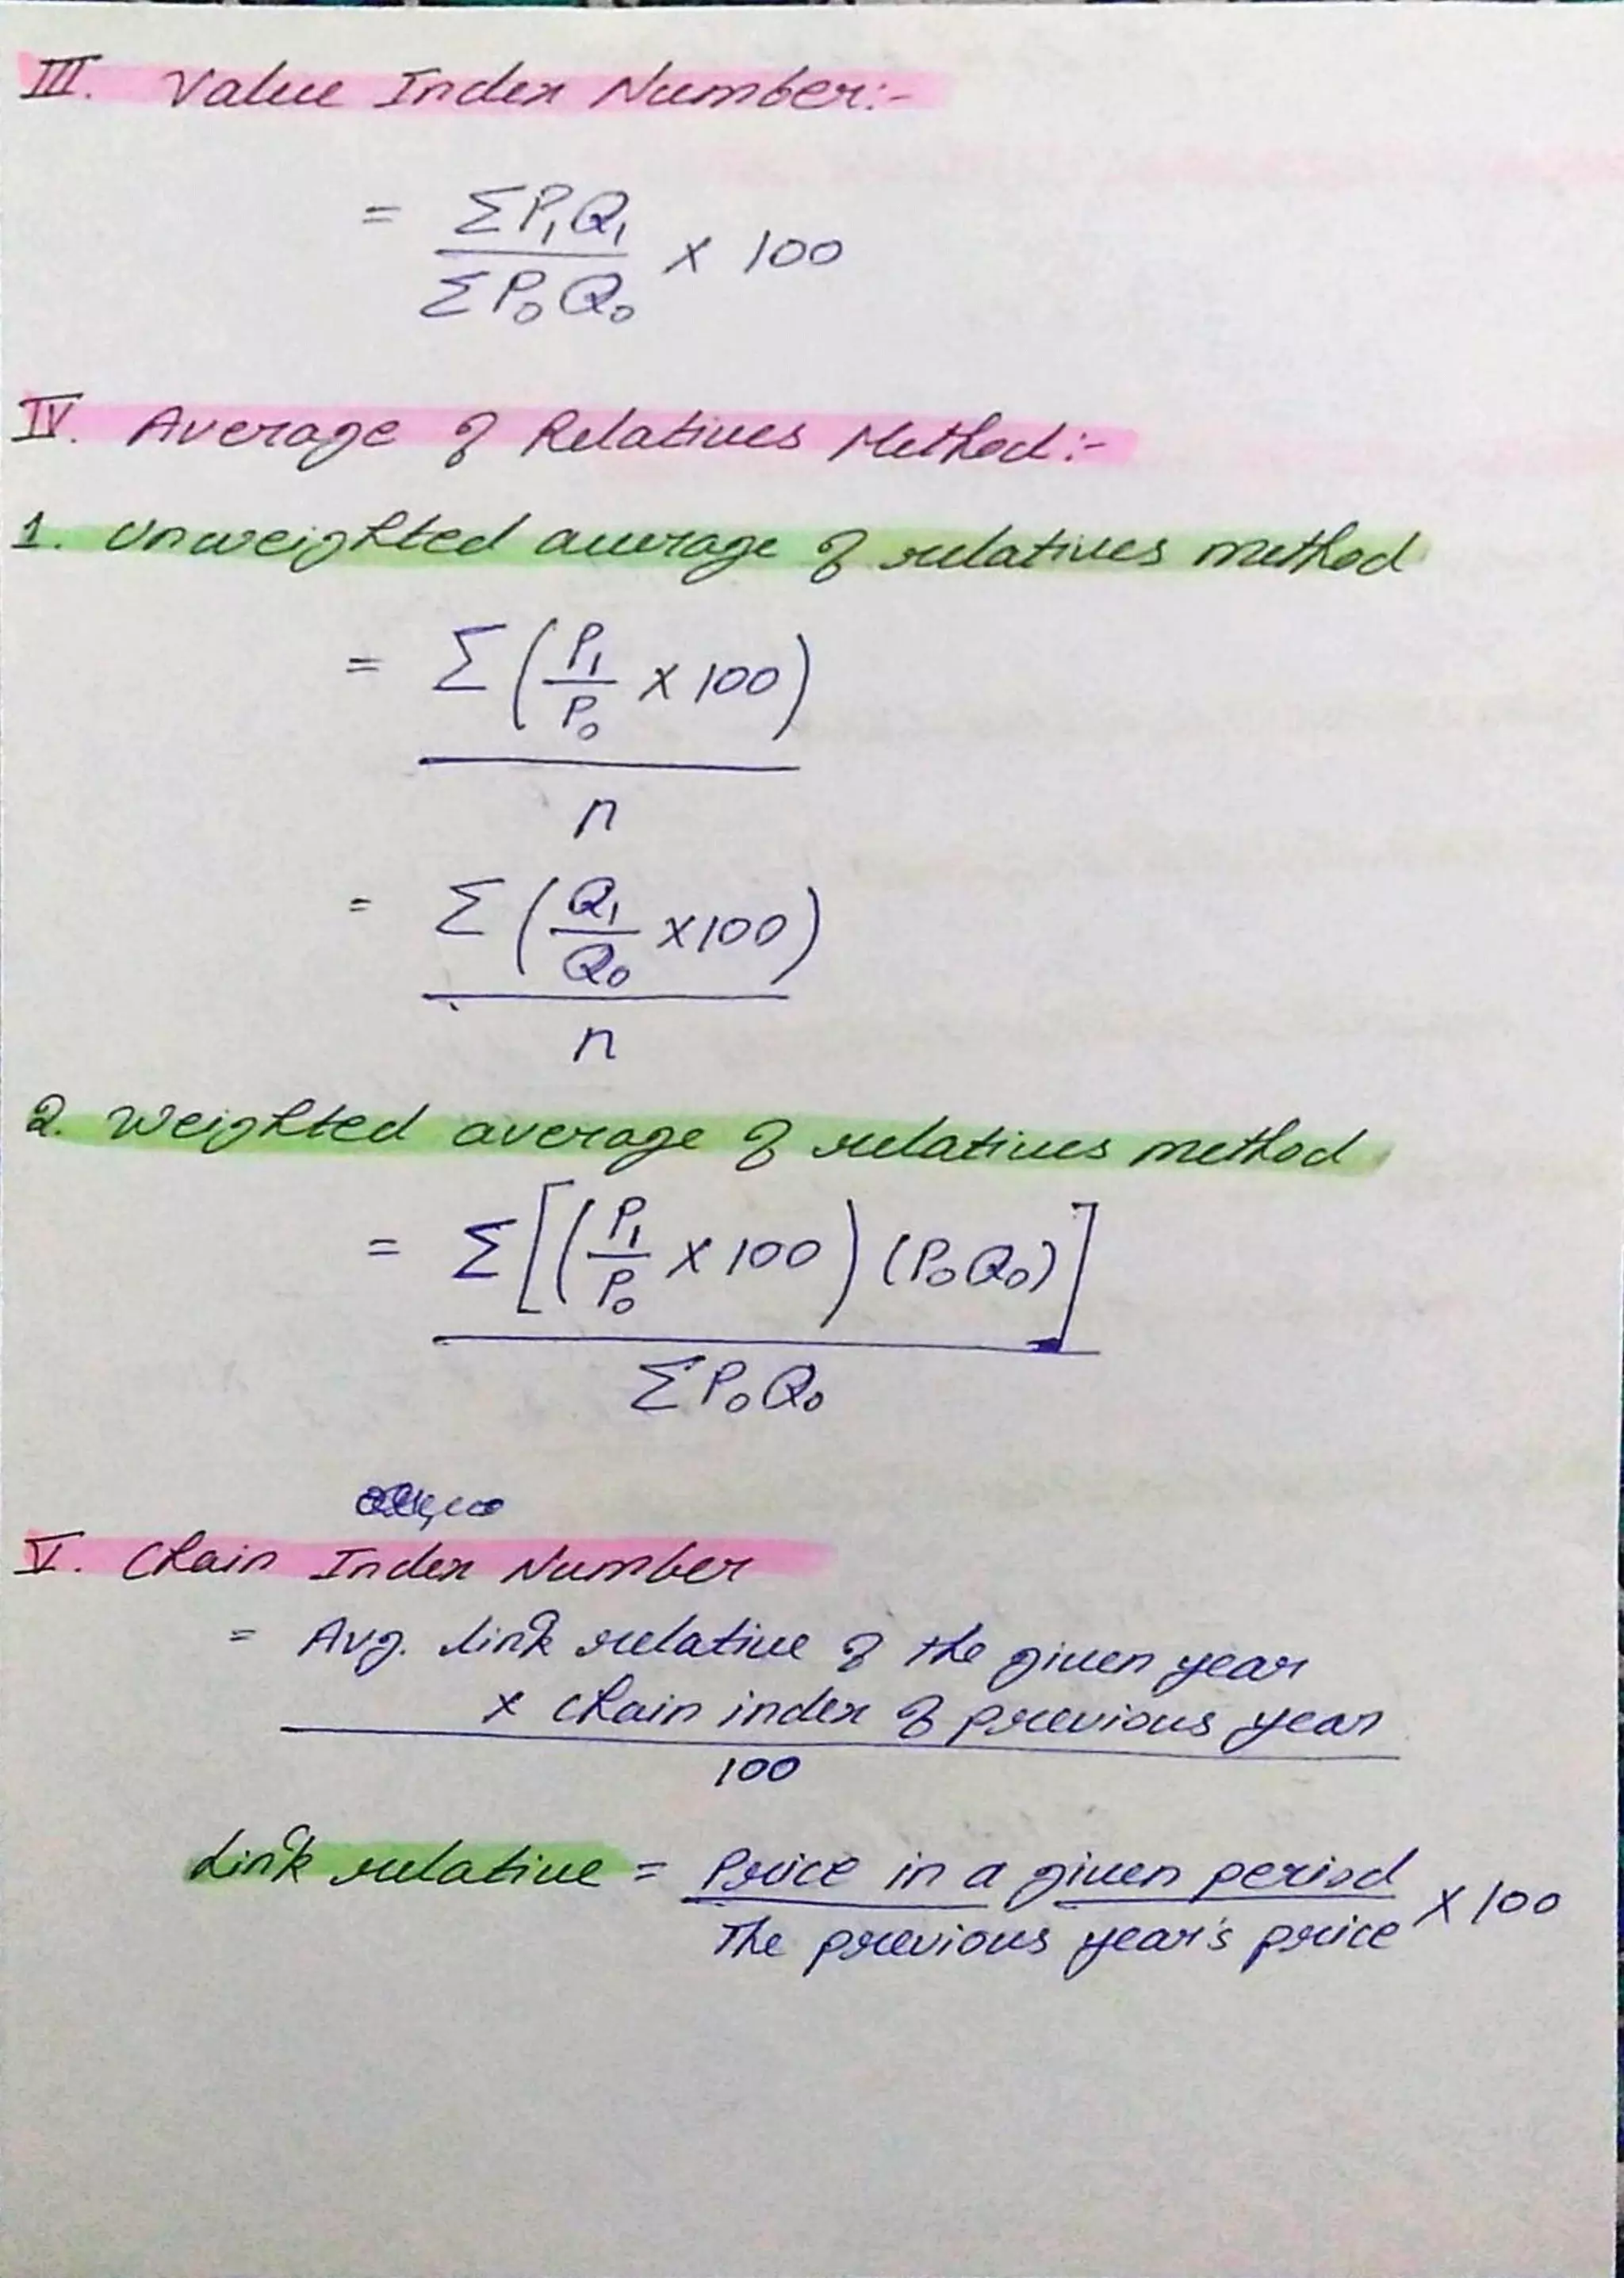 III. Value Index Number:-
= ΣP₁Q₁ / ΣP₀Q₀ × 100
IV. Average of Relatives Method:-
1. Unweighted average of relatives method
= Σ(P₁/P₀ × 100) / n
= Σ(Q₁/Q₀ ×100) / n
2. Weighted average of relatives method
= Σ[(P₁/P₀ × 100) (P₀Q₀)] / ΣP₀Q₀
V. Chain Index Number
= Avg. link relative of the given year
× Chain index of previous year
100
Link relative = Price in a given period / The previous year's price × 100